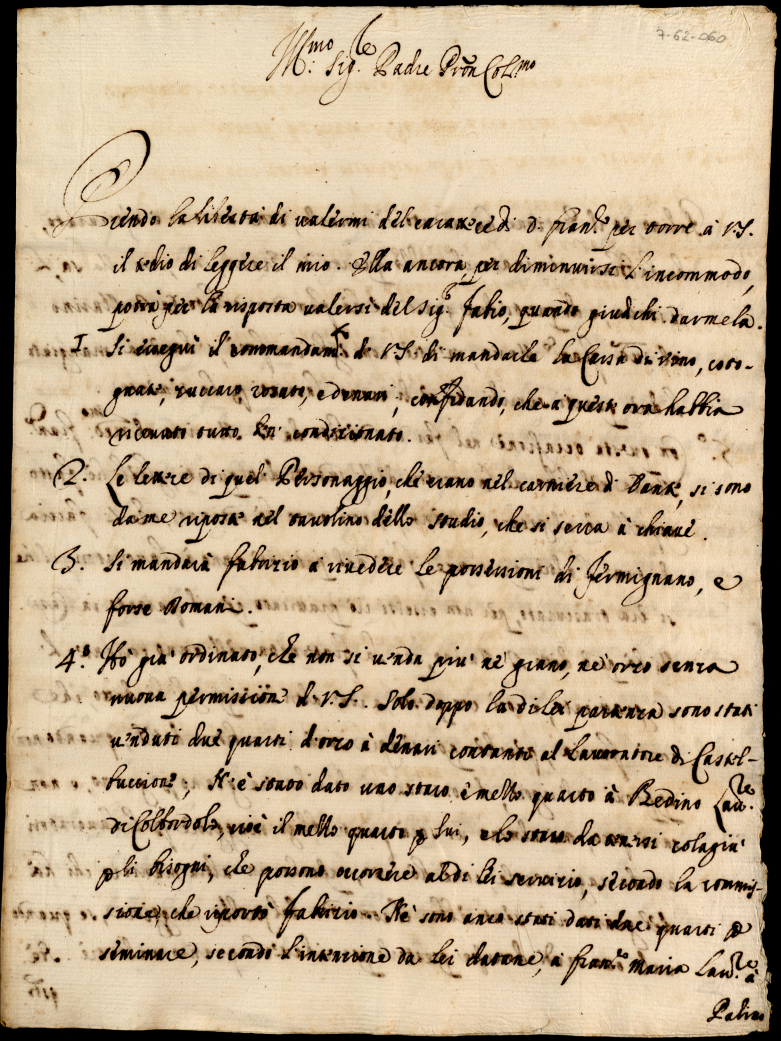 7-62-060
Ill.mo Sig.re Padre Pron Col.mo
Prendo la libertà di valermi del carattere di D. Fran.co per torre à V.S.
il tedio di leggere il mio. Ella ancora per diminuirsi l'incommodo,
potrà per la risposta valersi del Sig. Fabio, quando giudichi darmela.
1 Si eseguì il commandam.to di V.S. di mandarle la Cassa di vino, coto-
gnate, zuccaro rosato, e denari, confidando, che a quest ora habbia
ricevuto tutto ben condizionato.
2. Le lettere di quel Personaggio, che erano nel carniere di Dante, si sono
da me riposte nel tavolino dello studio, che si serra à chiave.
3. Si mandarà Fabrizio à rivedere le possessioni di Fermignano, e
forse Romani.
4.o Hò già ordinato, che non si venda più né grano, né orzo senza
nuova permissione di V.S. Solo doppo la di lei partenza sono stati
venduti due quarti d'orzo à denari contanti al Lavoratore di Castel-
buccione, N'è stato dato uno staro e mezzo quarto à Bedino Lav.re
di Colbordolo, cioè il mezzo quarto p lui, e lo staro da tenersi colagiù
p li bisogni, che possono occorrere al di lei servizio, secondo la commis-
sione, che riportò Fabrizio. Ne sono anco stati dati due quarti p
seminare, secondo l'intenzione da lei datane, a Fran.co Maria Lav.re à
Palino